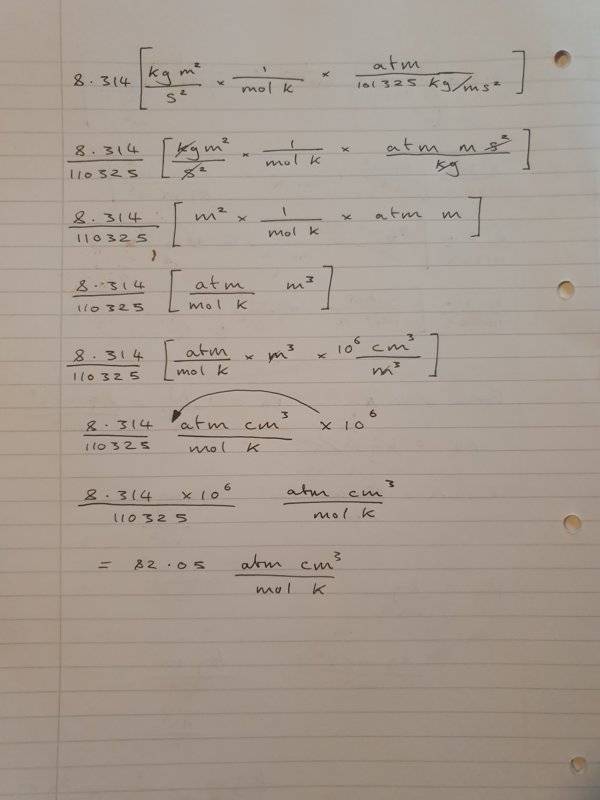 8.314 [ kg m²/s² × 1/mol k × atm/101325 kg/ms² ]
8.314/110325 [ kg m²/s² × 1/mol k × atm m s²/kg ]
8.314/110325 [ m² × 1/mol k × atm m ]
8.314/110325 [ atm/mol k m³ ]
8.314/110325 [ atm/mol k × m³ × 10⁶ cm³/m³ ]
8.314/110325 atm cm³/mol k × 10⁶
8.314 × 10⁶/110325 atm cm³/mol k
= 82.05 atm cm³/mol k